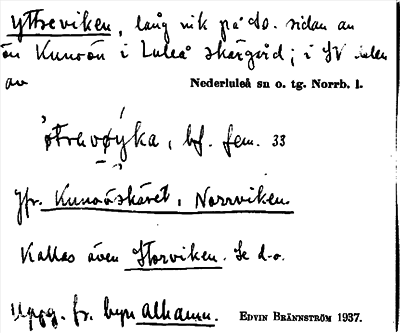 Yttreviken, lång vik på SO. sidan av
ön Kunoön i Luleå skärgård; i SV delen
av Nederluleå sn o. tg. Norrb. l.
bf. fem. 33
Jfr. Kunoöskäret, Norrviken.
Kallas även Storviken. Se d.o.
Uppg. fr. byn Alhamn. EDVIN BRÄNNSTRÖM 1937.